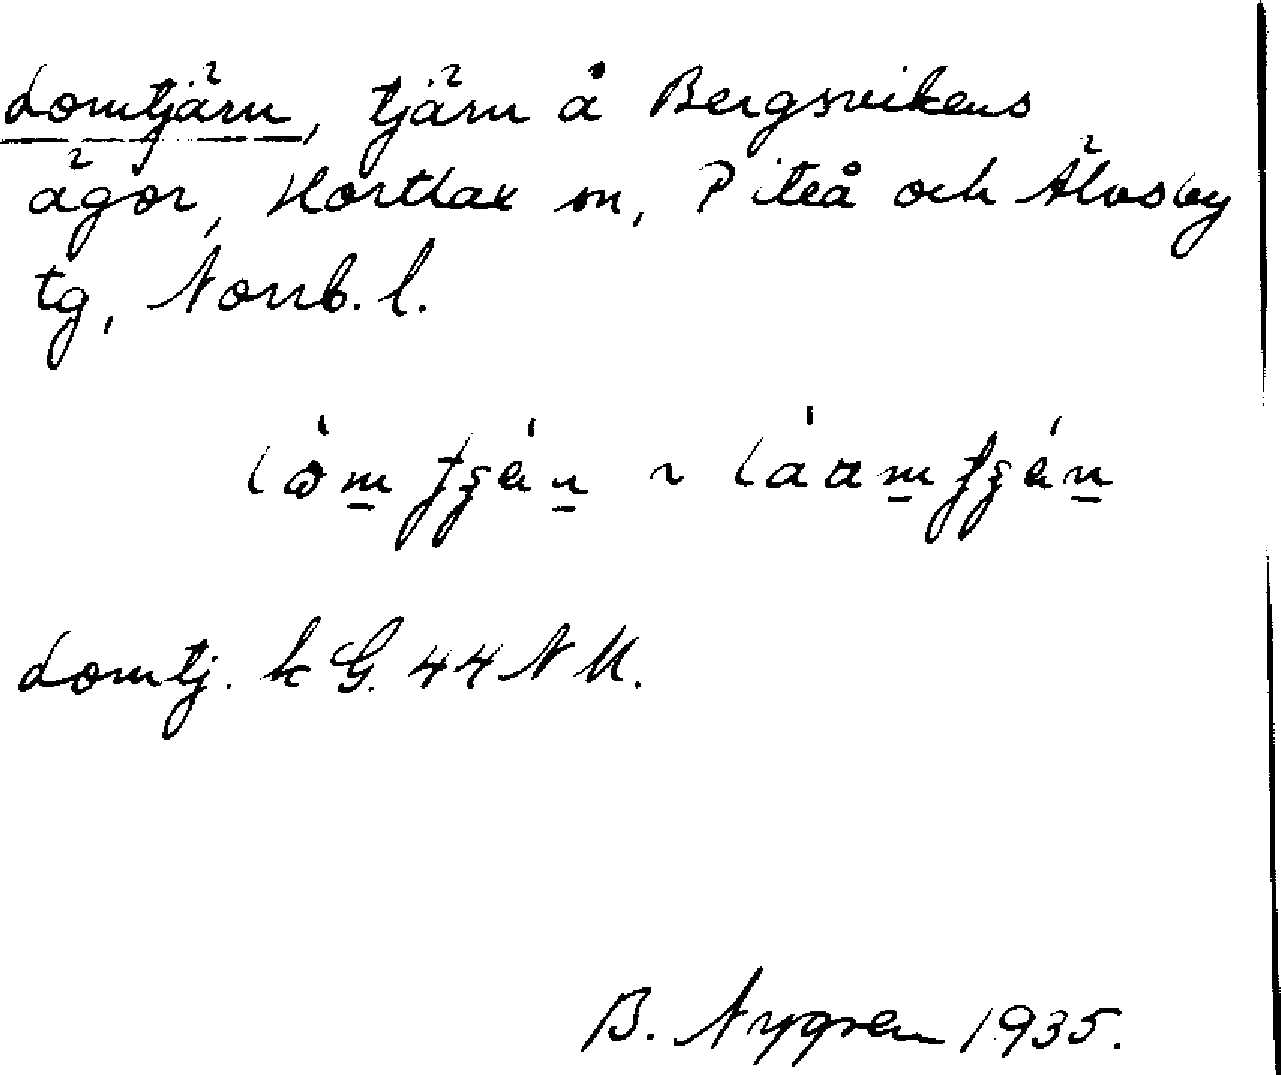 Lomtjärn, tjärn å Bergsvikens
ägor, Hortlax sn, Piteå och Älvsby
tg, Norrb. l.
Lomtj. k G. 44 N M.
B. Nygren 1935.